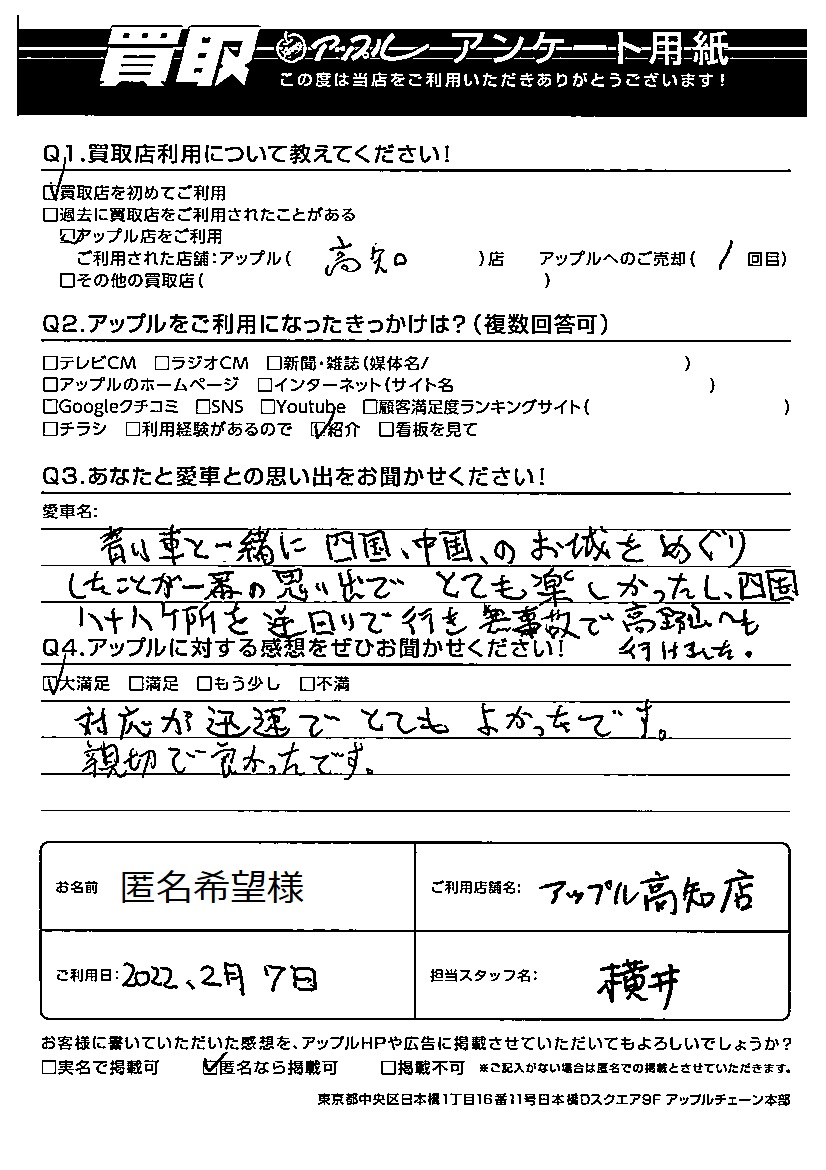 買取 アップル アンケート用紙
この度は当店をご利用いただきありがとうございます！
Q1.買取店利用について教えてください！
☑買取店を初めてご利用
□過去に買取店をご利用されたことがある
☑アップル店をご利用
ご利用された店舗：アップル（ 高知 ）店 アップルへのご売却（ 1 回目）
□その他の買取店（ ）
Q2.アップルをご利用になったきっかけは？（複数回答可）
□テレビCM □ラジオCM □新聞・雑誌（媒体名/ ）
□アップルのホームページ □インターネット（サイト名 ）
□Googleクチコミ □SNS □Youtube □顧客満足度ランキングサイト（ ）
□チラシ □利用経験があるので ☑紹介 □看板を見て
Q3.あなたと愛車との思い出をお聞かせください！
愛車名：
青い車と一緒に四国、中国、のお城をめぐり
したことが一番の思い出で とても楽しかったし、四国
八十八ケ所を逆回りで行き無事故で高野山へも
行けました。
Q4.アップルに対する感想をぜひお聞かせください！
☑大満足 □満足 □もう少し □不満
対応が迅速でとてもよかったです。
親切で良かったです。
お名前 匿名希望様
ご利用店舗名： アップル高知店
ご利用日：2022、2月7日
担当スタッフ名： 横井
お客様に書いていただいた感想を、アップルHPや広告に掲載させていただいてもよろしいでしょうか？
□実名で掲載可 ☑匿名なら掲載可 □掲載不可 ※ご記入がない場合は匿名での掲載とさせていただきます。
東京都中央区日本橋1丁目16番11号日本橋Dスクエア9F アップルチェーン本部